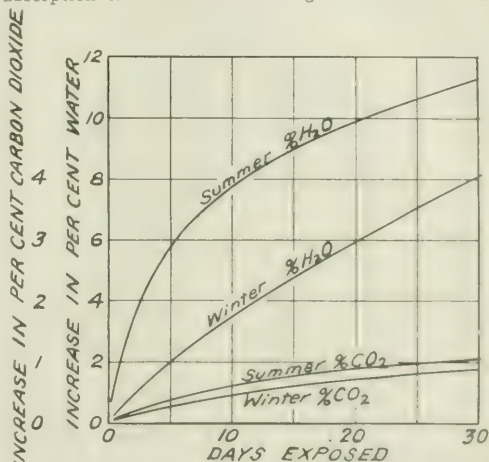 INCREASE IN PER CENT CARBON DIOXIDE
4
3
2
1
0
INCREASE IN PER CENT WATER
12
10
8
6
4
2
0
Summer %H₂O
Winter %H₂O
Summer %CO₂
Winter %CO₂
0
10
20
30
DAYS EXPOSED